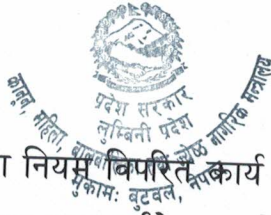 प्रदेश सरकार
लुम्बिनी प्रदेश
कानून, महिला, बालबालिका तथा ज्येष्ठ नागरिक मन्त्रालय
मुकामः बुटवल, नेपाल
नियम विपरित कार्य